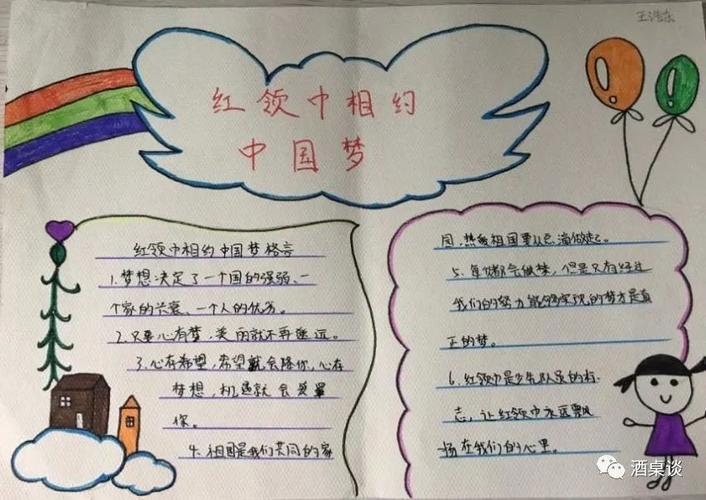 王浩东
红领巾相约
中国梦
红领巾相约中国梦格言
1.梦想决定了一个国的强弱、一
个家的兴衰、一个人的优劣。
2.只要心有梦,美丽就不再遥远。
3.心存希望,希望就会降你,心存
梦想,机遇就会笼罩
你。
4.祖国是我们共同的家
园,热爱祖国要从点滴做起。
5.每个人都会做梦,但是只有经过
我们的努力能够实现的梦才是真
正的梦。
6.红领巾是少先队员的标
志,让红领巾永远飘
扬在我们的心里。
酒桌谈